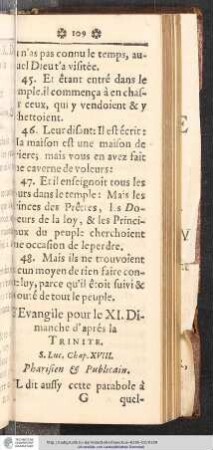 109
n'as pas connu le temps, au-
uel Dieu t'a visitée.
45. Et étant entré dans le
mple. il commença à en chas-
r ceux, qui y vendoient & y
chettoient.
46. Leur disant: Il est écrit:
Ma maison est une maison de
riere; mais vous en avez fait
ne caverne de voleurs:
47. Et il enseignoit tous les
ours dans le temple: Mais les
rinces des Prêtres, les Do-
eurs de la loy, & les Princi-
aux du peuple cherchoient
ne occasion de le perdre.
48. Mais ils ne trouvoient
cun moyen de rien faire con-
e luy, parce qu'il étoit suivi &
outé de tout le peuple.
Evangile pour le XI. Di-
manche d'aprés la
TRINITE.
S. Luc. Chap. XVIII.
Pharisien & Publicain.
L dit aussy cette parabole à
G quel-